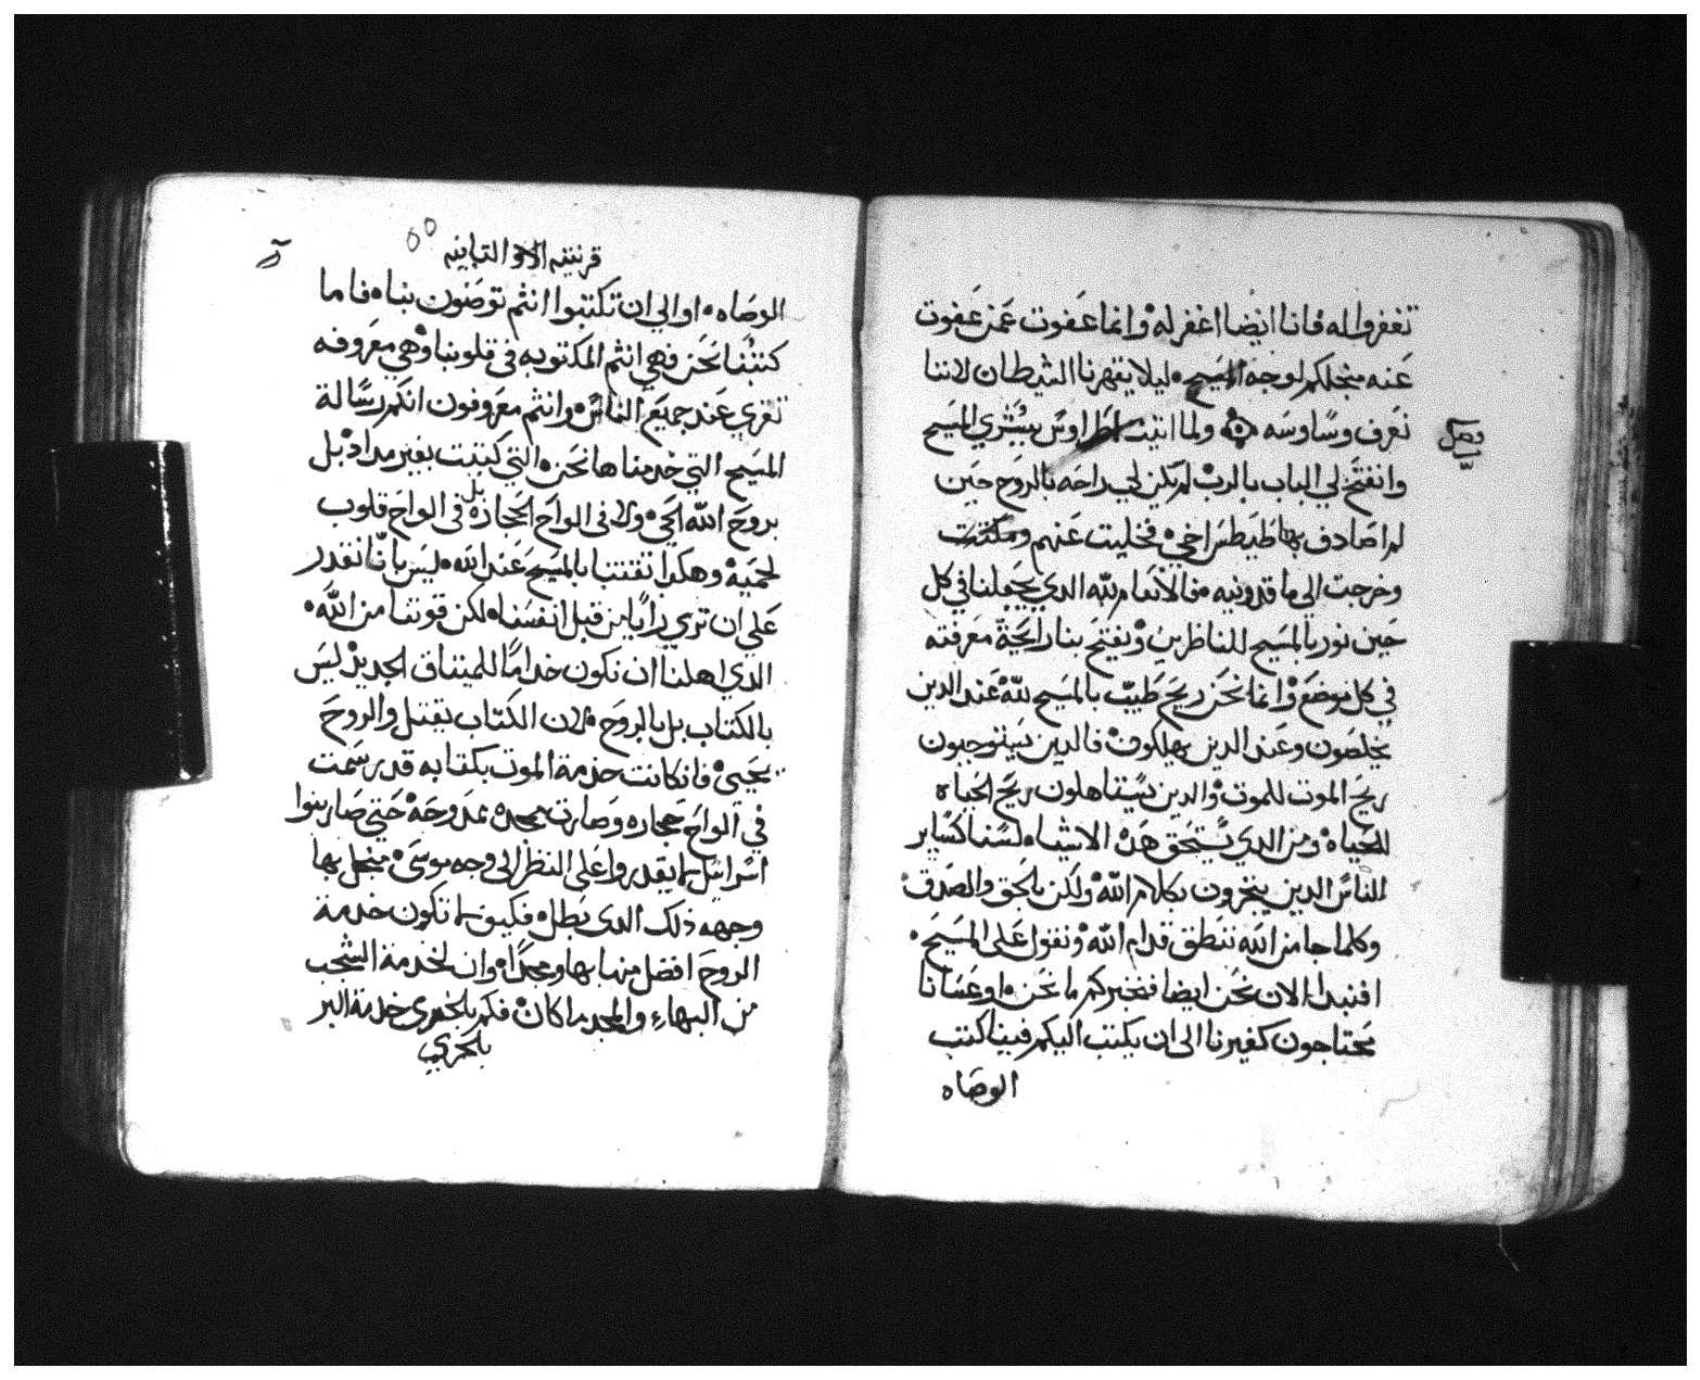 تغفروا له فانا ايضا اغفر له وانما عفوت عمن عفوت
عنه منجلكم لوجه المسيح ليلا يقهرنا الشيطان لاننا
نعرف وساوسه ولما اتيت اطراوس ببشري المسيح
وانفتح لي الباب بالرب لم تكن لي راحه بالروح حين
لم اصادف بها طيطس اخي فخليت عنهم
وخرجت الى ماقدونيه فالانعام لله الدي يجعلنا في كل
حين نور بالمسيح للناظرين ويفتح بنا رايحة معرفته
في كل موضع وانما نحن ريح طيب بالمسيح لله عند الدين
يخلصون وعند الدين يهلكون فالدين يستوجبون
ريح الموت للموت والدين يستاهلون ريح الحياه
للحياه ومن الدي يستحق هده الاشياه لسنا كساير
الناس الدين يتجرون بكلام الله ولكن بالحق والصدق
وكلما جا من الله ننطق قدام الله ونقول على المسيح
افنبدا الان نحن ايضا فنخبركم ما نحن او عسانا
محتاجون كغيرنا الى ان يكتب اليكم فينا كتب
الوصاه
فصل
قرنتيه الاولى التانيه
الوصاه او الي ان تكتبوا انتم توصون بنا فاما
كتبنا نحن فهي انتم المكتوبه في قلوبنا وهي معروفه
تقري عند جميع الناس وانتم معروفون انكم رسالة
المسيح التي خدمناها نحن التي كتبت بغير مداد بل
بروح الله الحي ولا في الواح الحجاره بل في الواح قلوب
لحميه وهكدا تقتنا بالمسيح عند الله ليس بانا نقدر
علي ان نري رايا من قبل انفسنا لكن قوتنا من الله
الدي اهلنا ان نكون خداما للميتاق الجديد ليس
بالكتاب بل بالروح لان الكتاب يقتل والروح
يحيي فان كانت خدمة الموت بكتابه قد رسمت
في الواح حجاره وصارت بمجد ممدوحه حتي صار بنوا
اسراييل لم يقدروا على النظر الى وجه موسى منجل بها
وجهه ذلك الدى بطل فكيف لم تكون خدمة
الروح افضل منها بها ومجدا وان لخدمة الشجب
من البهاء والمجد ما كان فكم بالحري خدمة البر
بالحري